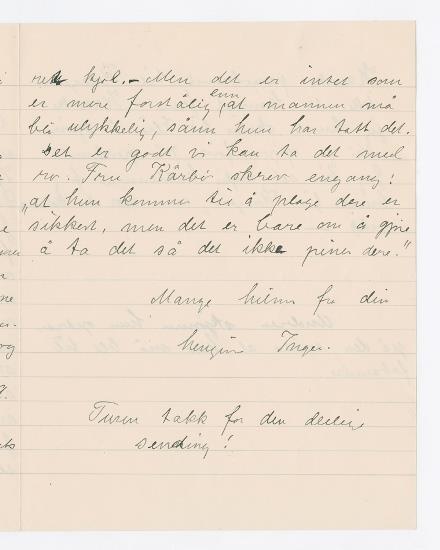 kjøl. – Men det er intet som
er mere forståelig enn at mannen må
bli ulykkelig, sånn hun har tatt det.
Det er godt vi kan ta det med
ro. Fru Kårbø skrev engang:
„at hun kommer til å plage dere er
sikkert, men det er bare om å gjøre
å ta det så det ikke piner dere."
Mange hilsner fra din
hengivne Inger.
Tusen takk for den deilige
sending!